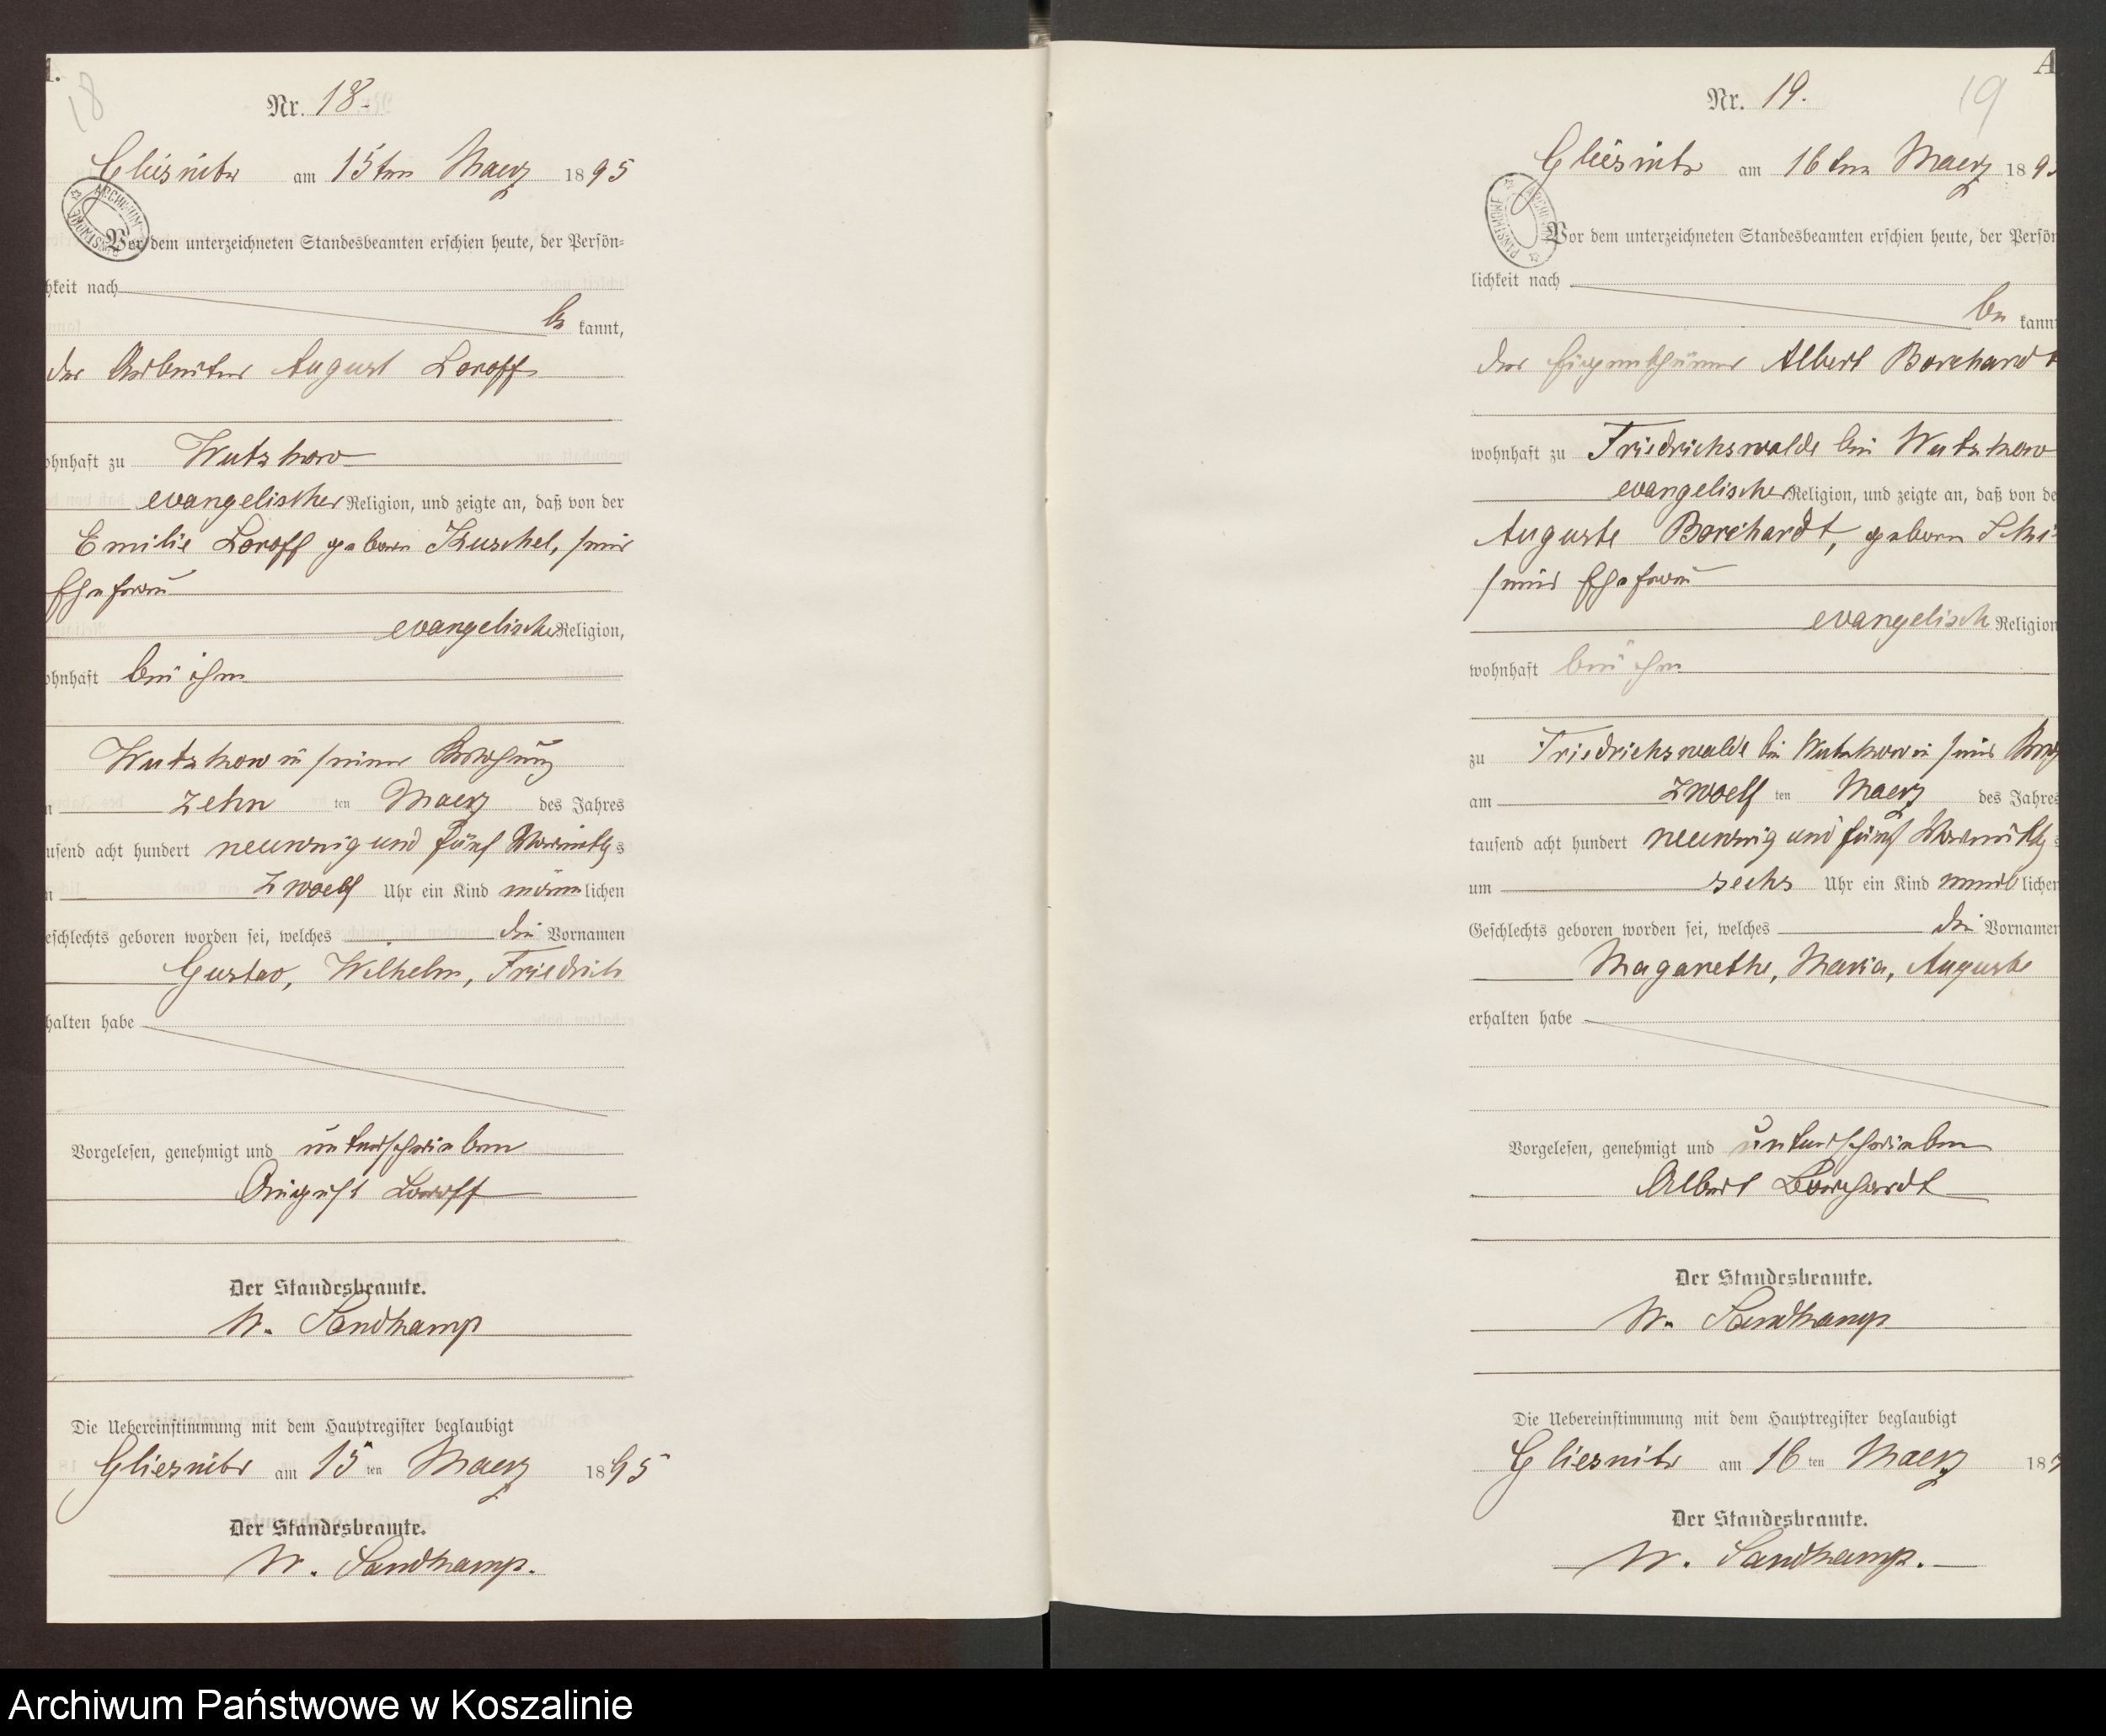 18
Nr. 18.
Gliesnitz am 15ten Maerz 1895
Vor dem unterzeichneten Standesbeamten erschien heute, der Persön-
hkeit nach
be kannt,
der Arbeiter August Loroff
ohnhaft zu Wutzkow
evangelischer Religion, und zeigte an, daß von der
Emilie Loroff geboren Kuschel, seine
Ehefrau
evangelischer Religion,
ohnhaft bei ihm
Wutzkow in seiner Wohnung
n zehn ten Maerz des Jahres
usend acht hundert neunzig und fünf Vormittgs
n zwoelf Uhr ein Kind männlichen
eschlechts geboren worden sei, welches die Vornamen
Gustav, Wilhelm, Friedrich
halten habe
Vorgelesen, genehmigt und unterschrieben
August Loroff
Der Standesbeamte.
W. Sandkamp
Die Uebereinstimmung mit dem Hauptregister beglaubigt
Gliesnitz am 15 ten Maerz 1895
Der Standesbeamte.
W. Sandkamp.
A
19
Nr. 19.
Gliesnitz am 16ten Maerz 189
Vor dem unterzeichneten Standesbeamten erschien heute, der Persön
lichkeit nach
be kannt
der Eigenthümer Albert Borchardt
wohnhaft zu Friedrichswalde bei Wutzkow
evangelischer Religion, und zeigte an, daß von de
Auguste Borchardt, geboren
seine Ehefrau
evangelisch Religion
wohnhaft bei ihm
zu Friedrichswalde bei Wutzkow in seine
am zwoelf ten Maerz des Jahres
tausend acht hundert neunzig und fünf Vormittg
um sechs Uhr ein Kind weiblichen
Geschlechts geboren worden sei, welches die Vornamen
Magarethe, Maria, Auguste
erhalten habe
Vorgelesen, genehmigt und unterschrieben
Albert Borchardt
Der Standesbeamte.
W. Sandkamp
Die Uebereinstimmung mit dem Hauptregister beglaubigt
Gliesnitz am 16 ten Maerz 189
Der Standesbeamte.
W. Sandkamp.
Archiwum Państwowe w Koszalinie